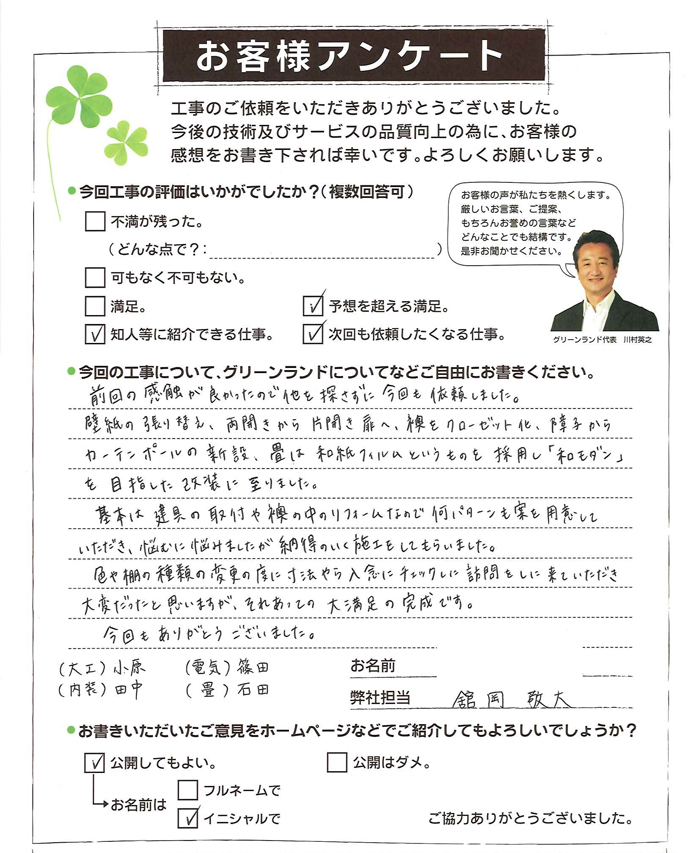 お客様アンケート
工事のご依頼をいただきありがとうございました。
今後の技術及びサービスの品質向上の為に、お客様の
感想をお書き下されば幸いです。よろしくお願いします。
●今回工事の評価はいかがでしたか？(複数回答可)
お客様の声が私たちを熱くします。
厳しいお言葉、ご提案、
もちろんお誉めの言葉など
どんなことでも結構です。
是非お聞かせください。
□ 不満が残った。
(どんな点で？: )
□ 可もなく不可もない。
□ 満足。 ☑ 予想を超える満足。
☑ 知人等に紹介できる仕事。 ☑ 次回も依頼したくなる仕事。
グリーンランド代表 川村英之
●今回の工事について、グリーンランドについてなどご自由にお書きください。
前回の感触が良かったので他を探さずに今回も依頼しました。
壁紙の張り替え、両開きから片開き扉へ、襖をクローゼット化、障子から
カーテンポールの新設、畳は和紙フィルムというものを採用し「和モダン」
を目指した改装に至りました。
基本は建具の取付や襖の中のリフォームなので何パターンも案を用意して
いただき、悩むに悩みましたが納得のいく施工をしてもらいました。
色や棚の種類の変更の度に寸法やら入念にチェックしに訪問をしに来ていただき
大変だったと思いますが、それあっての大満足の完成です。
今回もありがとうございました。
(大工)小原 (電気)篠田
(内装)田中 (畳)石田
お名前
弊社担当 舘岡 敬大
●お書きいただいたご意見をホームページなどでご紹介してもよろしいでしょうか？
☑ 公開してもよい。 □ 公開はダメ。
お名前は □ フルネームで
☑ イニシャルで
ご協力ありがとうございました。